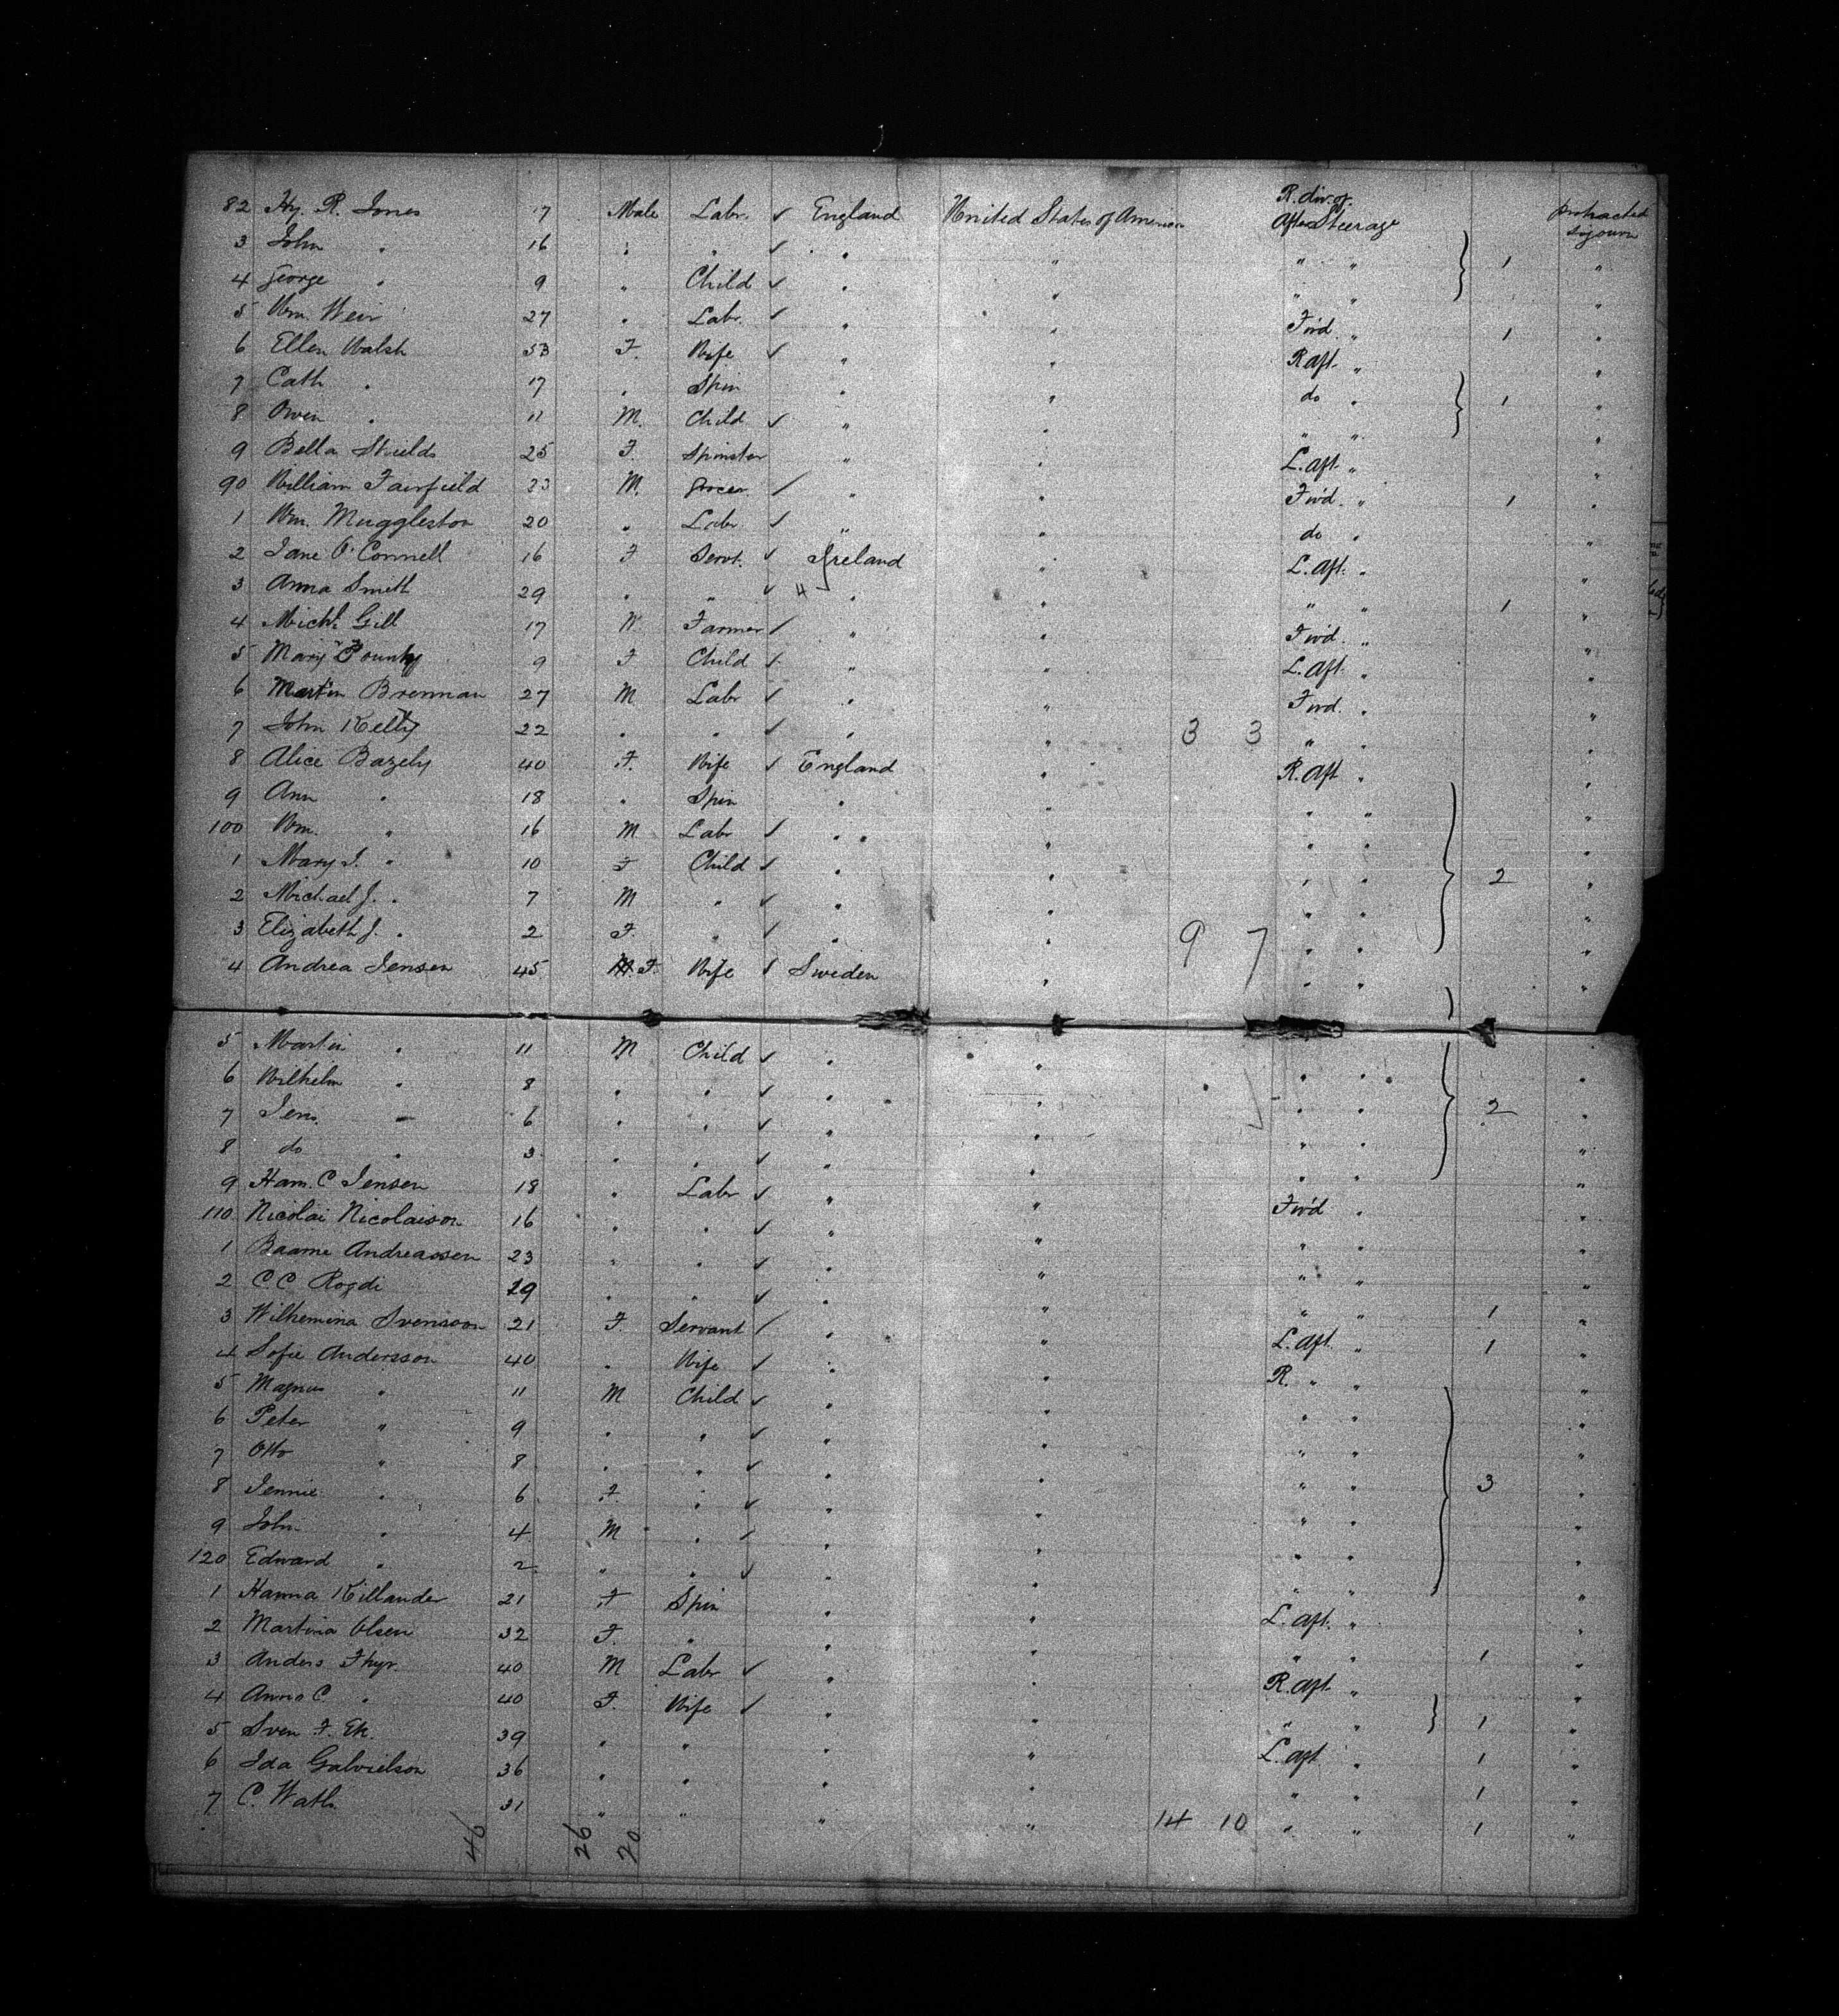 82 Hy. R. Jones 17 Male Labr. ✓ England United States of America R. div. of After Steerage protracted sojourn
3 John " 16 " " ✓ " " " " 1 "
4 George " 9 " Child ✓ " " " " "
5 Wm. Weir 27 " Labr. ✓ " " Fwd. " 1 "
6 Ellen Walsh 53 F. Wife ✓ " " R aft. " "
7 Cath " 17 " Spin " " do " 1 "
8 Owen " 11 M. Child ✓ " " " " "
9 Bella Shields 25 F. Spinster " " L. aft. " "
90 William Fairfield 23 M. Grocer ✓ " " Fwd. " 1 "
1 Wm. Muggleston 20 " Labr ✓ " " do " "
2 Jane O'Connell 16 F Servt. ✓ Ireland " L. Aft. " "
3 Anna Smith 29 " " ✓ 4 " " " " 1 "
4 Michl. Gill 17 M Farmer ✓ " " Fwd. " "
5 Mary 9 F Child ✓ " " L. Aft. " "
6 Martin Brennan 27 M Labr ✓ " " Fwd. " "
7 John Kelly 22 " " ✓ " " 3 3 " " "
8 Alice Bazely 40 F. Wife ✓ England " R. Aft " "
9 Ann " 18 " Spin " " " " "
100 Wm. " 16 M Labr ✓ " " " " "
1 Mary J. " 10 F Child ✓ " " " " 2 "
2 Michael J. " 7 M " ✓ " " " " "
3 Elizabeth J. " 2 F. " ✓ " " 9 7 " " "
4 Andrea Jensen 45 F. Wife ✓ Sweden " " " "
5 Martin " 11 M Child ✓ " " " " "
6 Wilhelm " 8 " " ✓ " " " " 2 "
7 Jens " 6 " " ✓ " " " " "
8 do " 3 " " ✓ " " " " "
9 Ham. C Jensen 18 " Labr ✓ " " Fwd " "
110 Nicolai Nicolaison 16 " " ✓ " " " " "
1 Baame Andreassen 23 " " ✓ " " " " "
2 C. C. Rogdi 29 " " ✓ " " " " 1 "
3 Wilhemina Svensson 21 F. Servant ✓ " " L. Aft. " 1 "
4 Sofie Andersson 40 " Wife ✓ " " R. " " "
5 Magnus " 11 M Child ✓ " " " " "
6 Peter " 9 " " ✓ " " " " "
7 Otto " 8 " " ✓ " " " " 3 "
8 Jennie " 6 F. " ✓ " " " " "
9 John " 4 M " ✓ " " " " "
120 Edward " 2 " " ✓ " " " " "
1 Hanna Killander 21 F Spin " " L. aft. " "
2 Martina Olsen 32 F. " " " " " 1 "
3 Anders Thyr. 40 M Labr ✓ " " R. aft. " "
4 Anna C. " 40 F. Wife ✓ " " " " 1 "
5 Sven F. Ek. 39 " " " " L. aft. " 1 "
6 Ida Gabrielson 36 " " " " " " 1 "
7 C. Wath 31 " " " " 14 10 " " 1 "
46 26 20